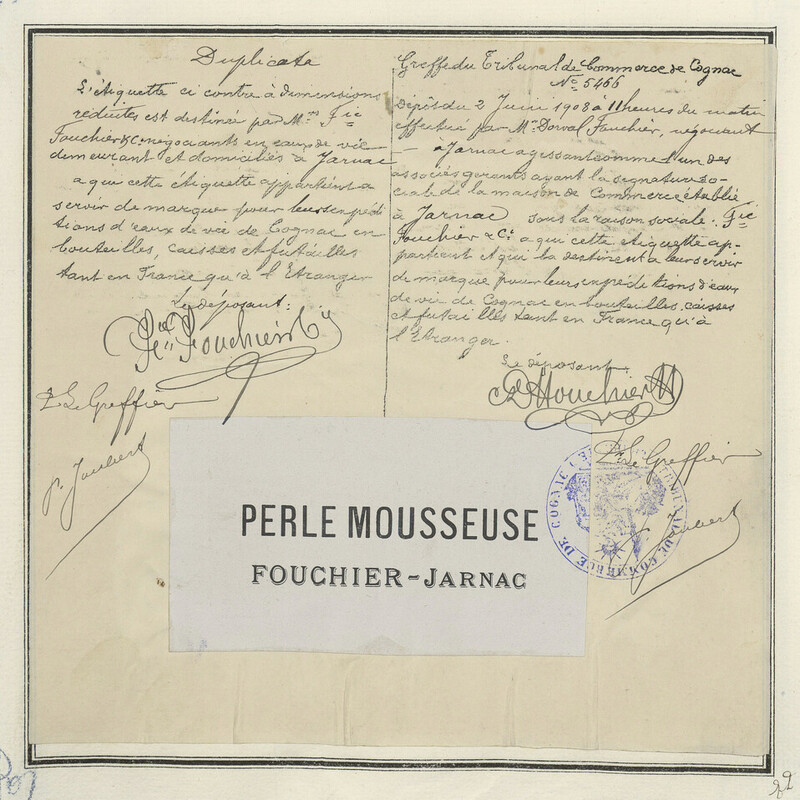 Duplicata
L'étiquette ci contre à dimensions
réduites est destinée par Mrs Fic
Fouchier & C négociants en eaux de vie
demeurant et domiciliés à Jarnac
a qui cette étiquette appartient a
servir de marque pour leurs expédi
tions d'eaux de vie de Cognac en
bouteilles, caisses et futailles
tant en France qu'à l'Etranger
Le déposant:
Fouchier
P. Le Greffier
P. Jaubert
Greffe du Tribunal de Commerce de Cognac
No 5466
Dépôt du 2 Juin 1908 à 11 heures du matin
effectué par Mr Dorval Fouchier, négociant
à Jarnac agissant comme l'un des
associés gérants ayant la signature so-
ciale de la maison de Commerce établie
à Jarnac sous la raison sociale: Fic
Fouchier & Cie a qui cette étiquette ap-
partient et qui la destinent a leur servir
de marque pour leurs expéditions d'eaux
de vie de Cognac en bouteilles, caisses
et futailles tant en France qu'à
l'Etranger.
Le déposant
Fouchier
P. Le Greffier
Jaubert
TRIBUNAL DE COMMERCE DE COGNAC
PERLE MOUSSEUSE
FOUCHIER-JARNAC